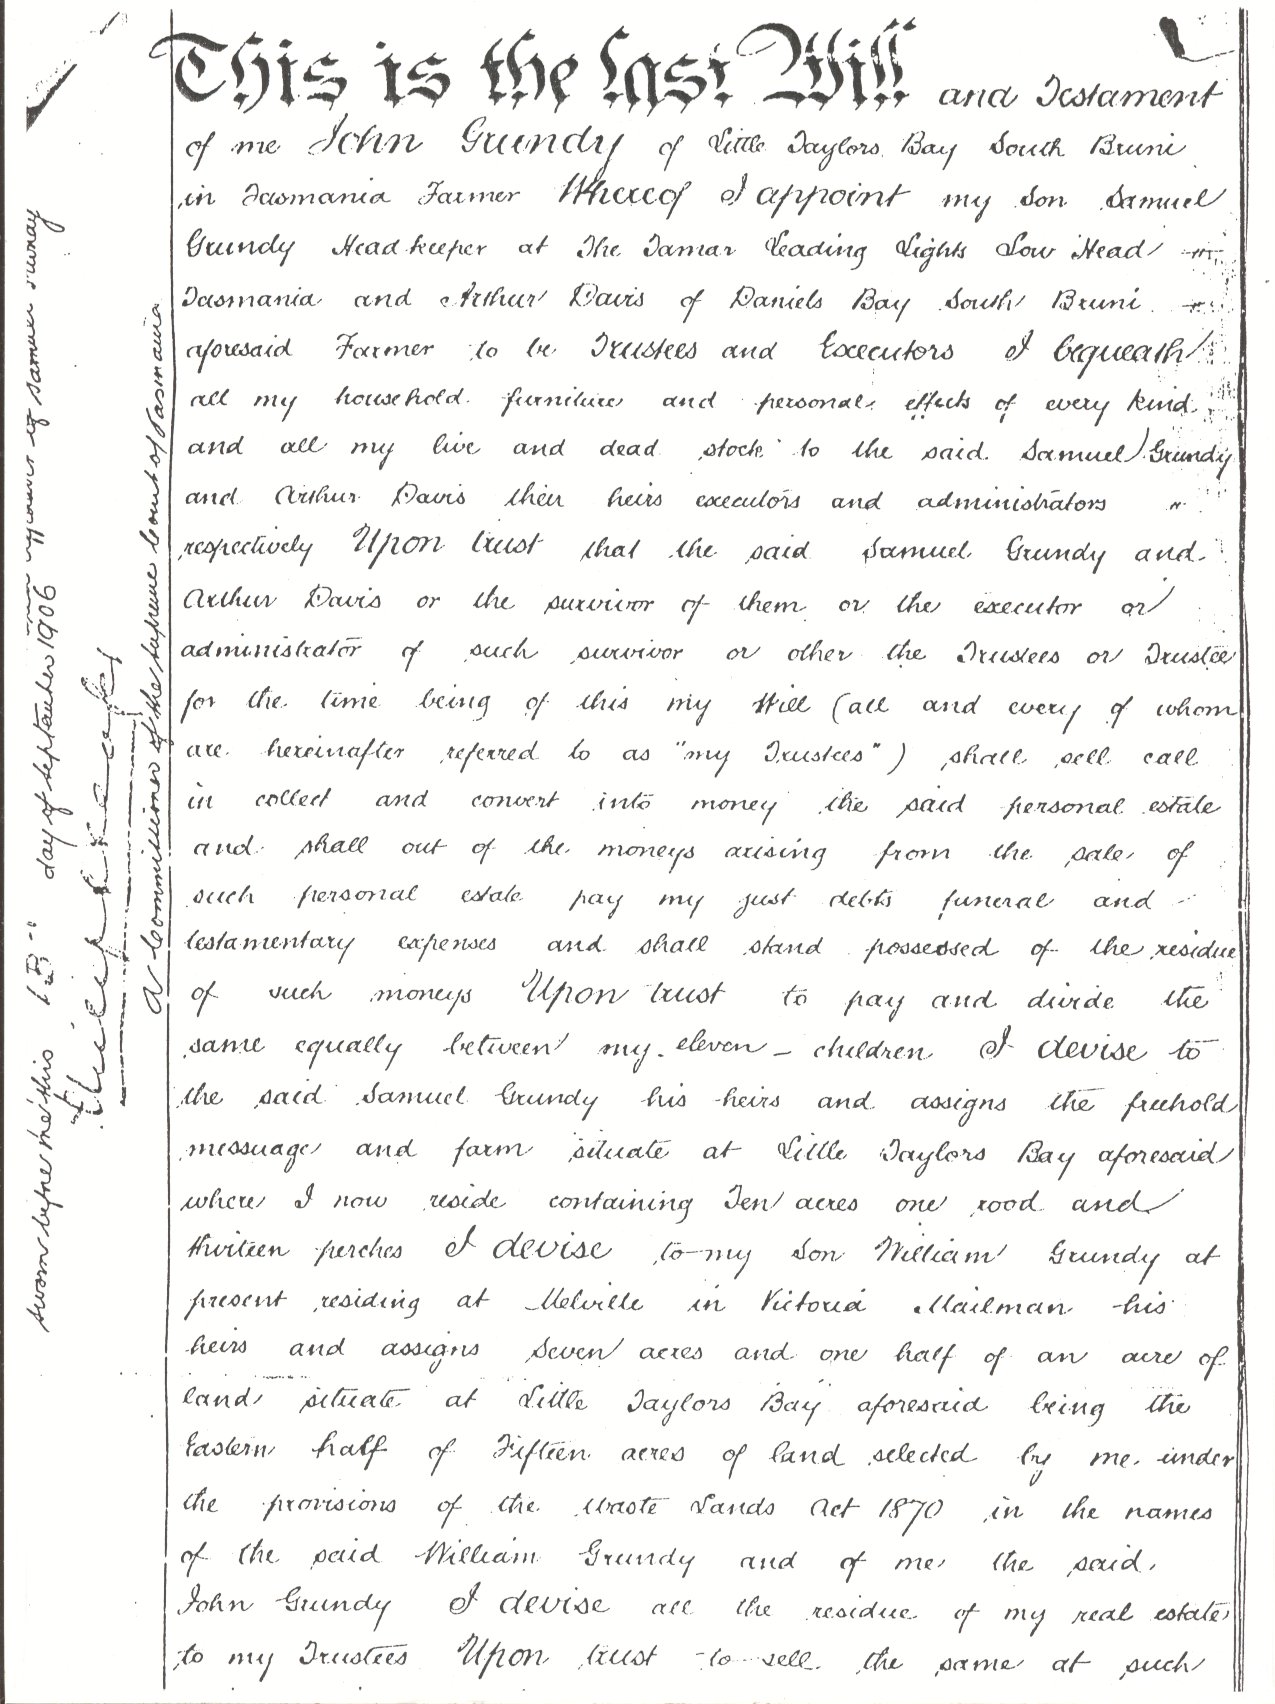 This is the last Will and Testament
of me John Grundy of Little Taylors Bay South Bruni
in Tasmania Farmer Whereof I appoint my Son Samuel
Grundy Head keeper at The Tamar Leading Lights Low Head
Tasmania and Arthur Davis of Daniels Bay South Bruni
aforesaid Farmer to be Trustees and Executors I bequeath
all my household furniture and personal effects of every kind
and all my live and dead stock to the said Samuel Grundy
and Arthur Davis their heirs executors and administrators "
respectively Upon trust that the said Samuel Grundy and
Arthur Davis or the survivor of them or the executor or
administrator of such survivor or other the Trustees or Trustee
for the time being of this my Will (all and every of whom
are hereinafter referred to as "my Trustees") shall sell call
in collect and convert into money the said personal estate
and shall out of the moneys arising from the sale of
such personal estate pay my just debts funeral and
testamentary expenses and shall stand possessed of the residue
of such moneys Upon trust to pay and divide the
same equally between my eleven children I devise to
the said Samuel Grundy his heirs and assigns the freehold
messuage and farm situate at Little Taylors Bay aforesaid
where I now reside containing Ten acres one rood and
thirteen perches I devise to my Son William Grundy at
present residing at Melville in Victoria Mailman his
heirs and assigns Seven acres and one half of an acre of
land situate at Little Taylors Bay aforesaid being the
Eastern half of Fifteen acres of land selected by me under
the provisions of the Waste Lands Act 1870 in the names
of the said William Grundy and of me the said
John Grundy I devise all the residue of my real estate
to my Trustees Upon trust to sell the same at such
of Samuel
Sworn before me this day of September 1906
A Commissioner of the Supreme Court of Tasmania